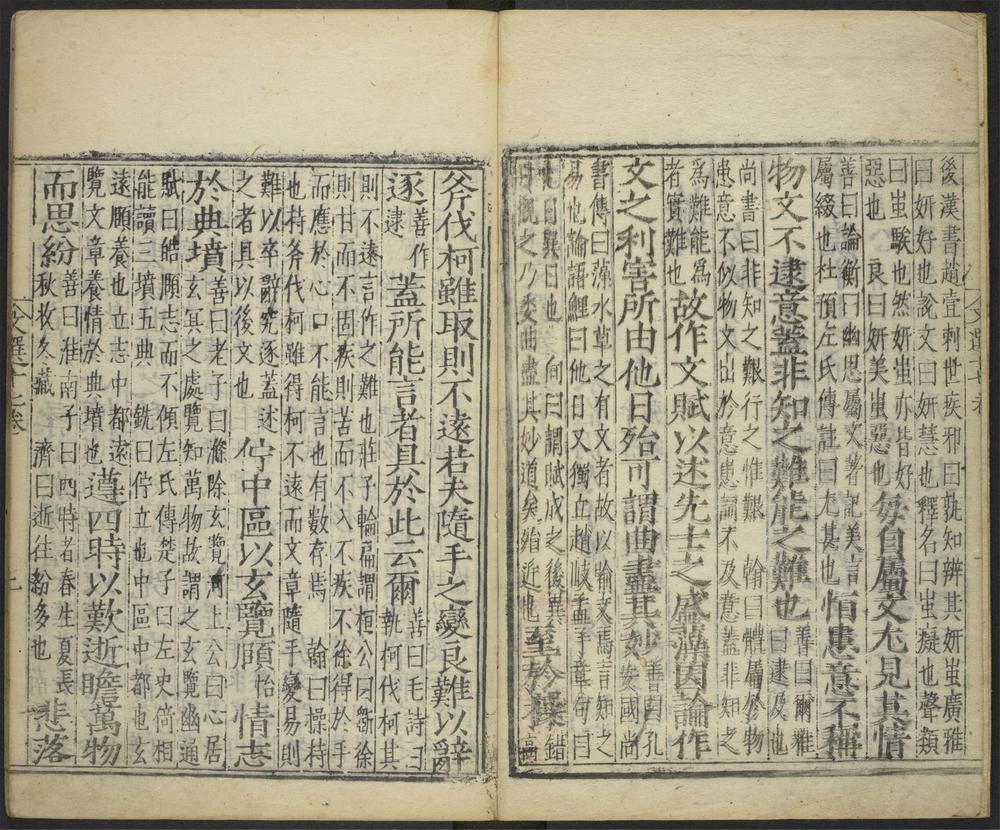 後漢書趙壹刺世疾邪曰孰知辨其妍蚩廣雅
曰妍好也說文曰妍慧也釋名曰蚩癡也聲類
曰蚩騃也然妍蚩亦皆好
惡也 良曰妍美蚩惡也每自屬文尤見其情
善曰論衡曰幽思屬文著記美言
屬綴也杜預左氏傳註曰尤甚也恒患意不稱
物文不逮意蓋非知之難能之難也善曰爾雅
曰逮及也
尚書曰非知之艱行之惟艱 翰曰體屬於物
患意不似物文出於意患詞不及意蓋非知之
為難能為
者實難也故作文賦以述先士之盛藻因論作
文之利害所由他日殆可謂曲盡其妙善曰孔
安國尚
書傳曰藻水草之有文者故以喻文焉言知之
易也論語鯉曰他日又獨立趙岐孟子章句曰
他日異日也 向曰謂賦成之後異
日觀之乃委曲盡其妙道矣殆近也至於操錯
高
斧伐柯雖取則不遠若夫隨手之變良難以辭
逐善作
逮蓋所能言者具於此云爾善曰毛詩曰
執柯伐柯其
則不遠言作之難也莊子輪扁謂桓公曰斲徐
則甘而不固疾則苦而不入不疾不徐得於手
而應於心口不能言也有數存焉 翰曰操持
也持斧伐柯雖得柯不遠而文章隨手變易則
難以卒辭究逐蓋述
之者具以後文也佇中區以玄覽頤怡情志
於典墳善曰老子曰滌除玄覽河上公曰心居
玄冥之處覽知萬物故謂之玄覽幽通
賦曰皓頤志而不傾左氏傳楚子曰左史倚相
能讀三墳五典 銑曰佇立也中區中都也玄
遠頤養也立志中都遠
覽文章養情於典墳也遵四時以歎逝瞻萬物
而思紛善曰淮南子曰四時者春生夏長
秋收冬藏 濟曰逝往紛多也悲落